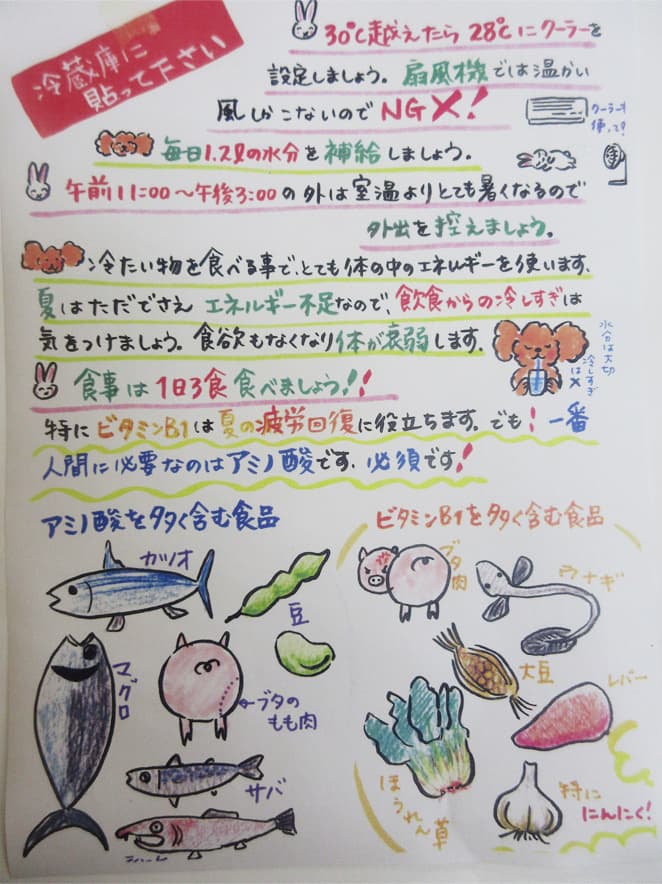 冷蔵庫に
貼って下さい
30℃越えたら28℃にクーラーを
設定しましょう。扇風機では温かい
風しかこないのでNG✗!
クーラーを
使って?
毎日1.2ℓの水分を補給しましょう。
午前11:00〜午後3:00の外は室温よりとても暑くなるので
外出を控えましょう。
冷たい物を食べる事で、とても体の中のエネルギーを使います。
夏はただでさえエネルギー不足なので、飲食からの冷しすぎは
気をつけましょう。食欲もなくなり体が衰弱します。
水分は大切
冷しすぎ
は×
食事は1日3食食べましょう!!
特にビタミンB1は夏の疲労回復に役立ちます。でも!一番
人間に必要なのはアミノ酸です。必須です!
アミノ酸を多く含む食品
カツオ
豆
マグロ
ブタの
もも肉
サバ
ビタミンB1を多く含む食品
ブタ肉
ウナギ
大豆
レバー
ほうれん草
特に
にんにく!